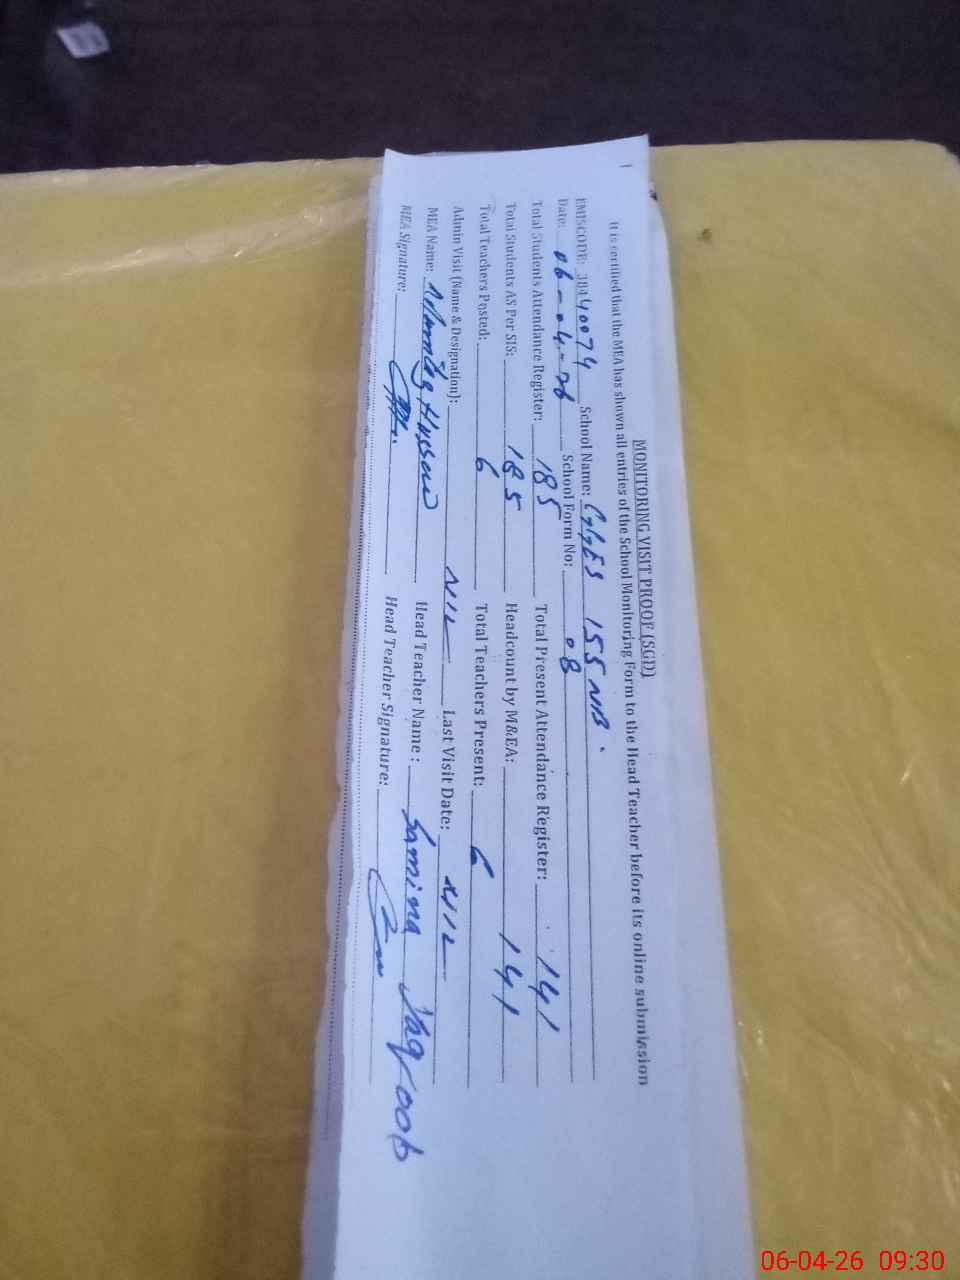 MONITORING VISIT PROOF (SGD)
It is certified that the MEA has shown all entries of the School Monitoring Form to the Head Teacher before its online submission
EMISCODE: 38440074 School Name: GGES 155 NB.
Date: 06-04-26 School Form No: 08
Total Students Attendance Register: 185 Total Present Attendance Register: 141
Total Students AS Per SIS: 185 Headcount by M&EA: 141
Total Teachers Posted: 6 Total Teachers Present: 6
Admin Visit (Name & Designation): NIL Last Visit Date: NIL
MEA Name: Hussain Head Teacher Name: Samina Yaqoob
MEA Signature: Head Teacher Signature:
06-04-26 09:30